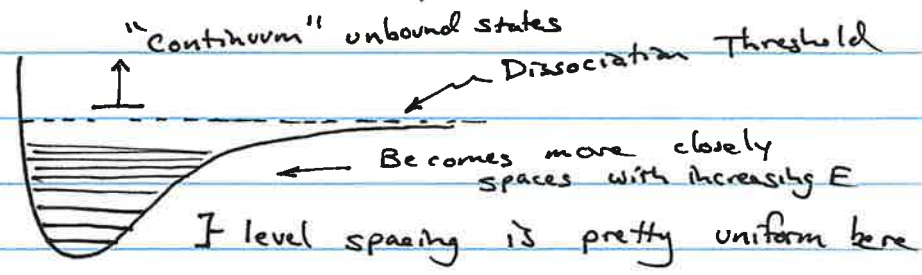 "Continuum" unbound states
Dissociation Threshold
Becomes more closely
spaces with increasing E
level spacing is pretty uniform here